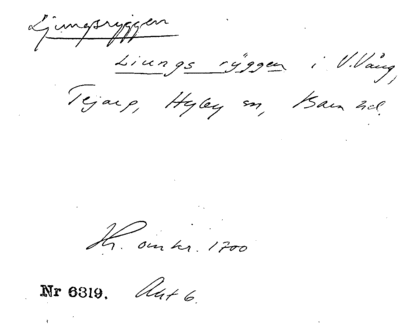 Ljungsryggen
Liungs rÿggen i V. Vång,
Tejarp, Hyby sn, Bara hd.
Hr. omkr. 1700
Nr 6319. Akt 6.